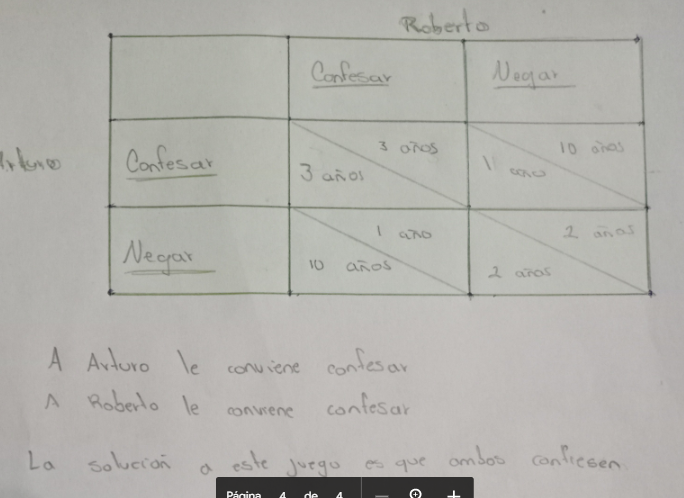 Roberto
Confesar Negar
3 años 10 años
Confesar 3 años 1
1 año 2 años
Negar 10 años 2 años
A Arturo le conviene confesar
A Roberto le conviene confesar
La solución a este juego es que ambos confiesen.
Página 4 de 4